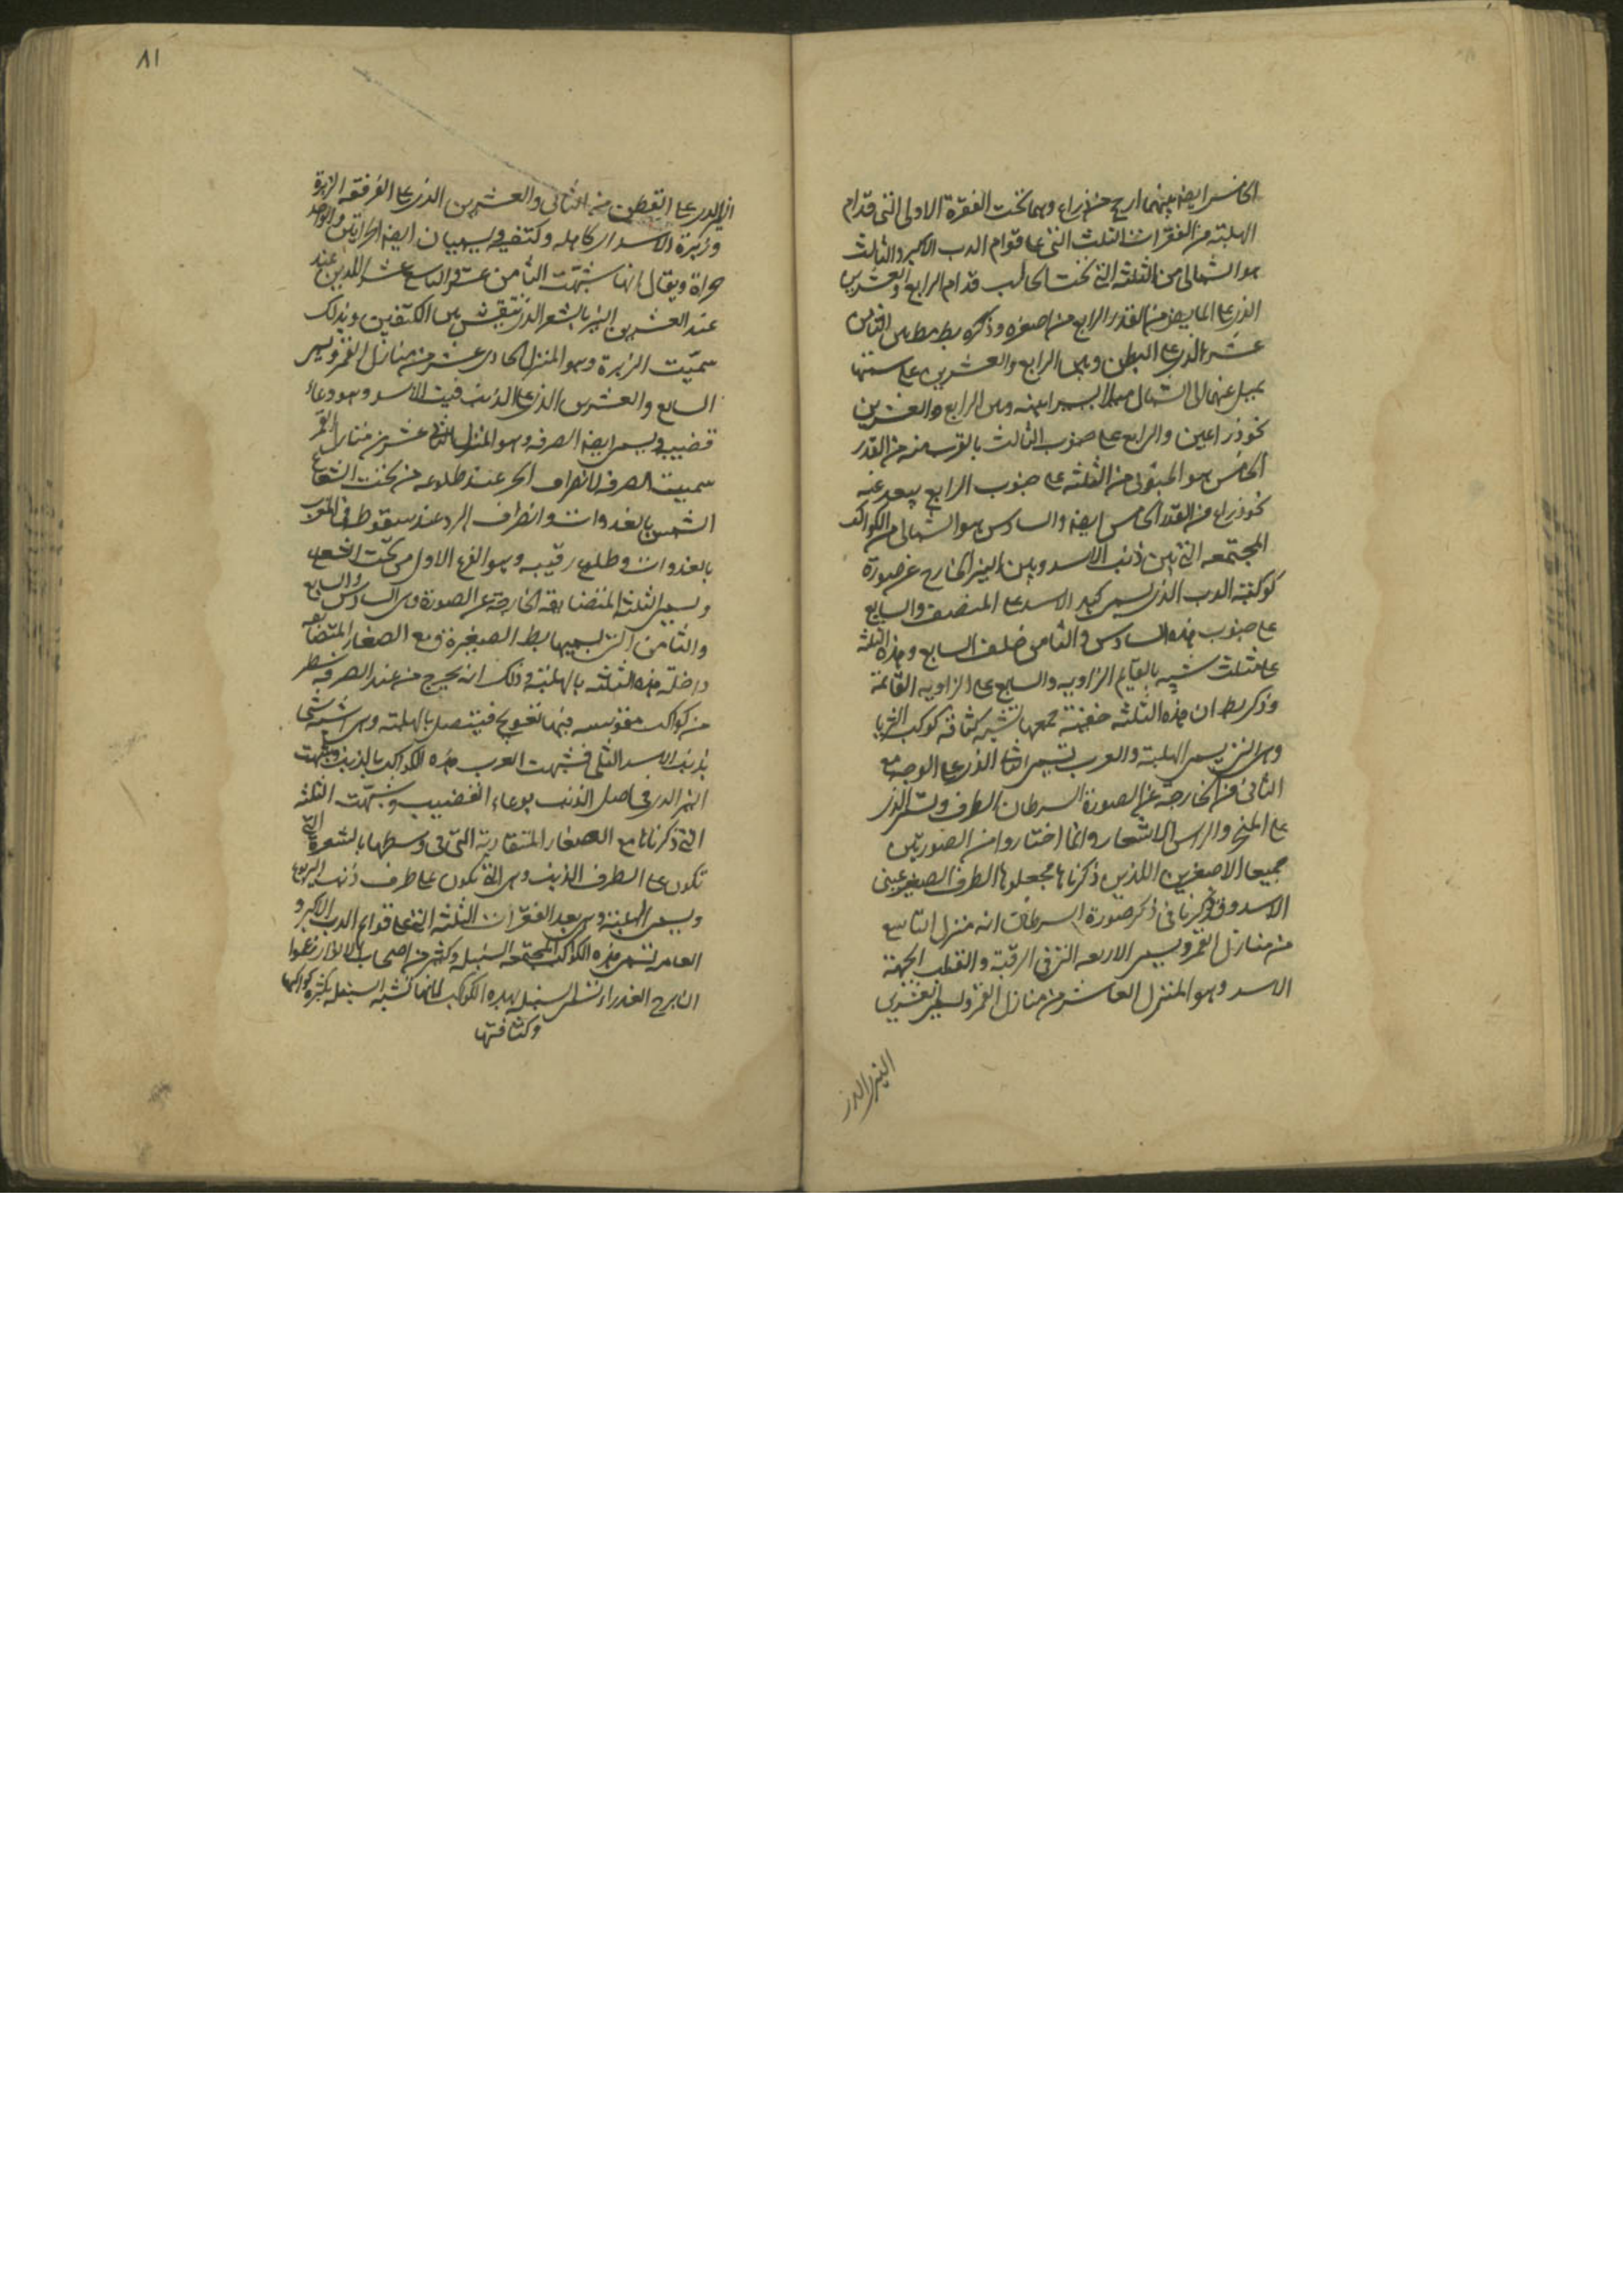 الخامس ايضا بينهما ارجح من ذراع وهما تحت الفقرة الاولى التي قدام
الهلبة من الفقرات الثلث التي على قوام الدب الاكبر والثالث
هو الشمالي من الثلثة التي تحت الحالب قدام الرابع والعشرين
الذي على المابض من القدر الرابع من اصغره وذكره بط بين الثامن
عشر الذي على البطن وبين الرابع والعشرين على سمتها
يميل عنهما الى الشمال ميلا يسيرا بينه وبين الرابع والعشرين
نحو ذراعين والرابع على جنوب الثالث بالقرب منه من القدر
الخامس هو المتوسط من الثلثة على جنوب الرابع يبعد عنه
نحو ذراع من القدر الخامس ايضا والسادس هو الشمالي من الكواكب
المجتمعه التي بين ذنب الاسد وبين النير الخارج عن صورة
كوكبة الدب الذي يسمى كبد الاسد على المنتصف والسابع
على جنوب هذا السادس والثامن خلف السابع وهذه الثلثة
على مثلث شبيه بالقايم الزاويه والسابع على الزاويه القائمة
وذكر بط ان هذه الثلثه خفية جمعها تشبه كثافة كوكب الثريا
وهي التي يسمى الهلبة والعرب تسمى الذي على الوجه مع
الثاني من الخارجة عن الصورة السرطان الطرف وتسمى الذي
على المنخر والراس الاشعار وانما اختاروا من الصورتين
جميعا الاصغرين اللذين ذكرناهما فجعلوها الطرف الصغير عيني
الاسد وقد ذكرنا في ذكر صورة السرطان انه منزل التاسع
من منازل القمر ويسمى الاربعه التي في الرقبة والقلب الجبهة
الاسد وهو المنزل العاشر من منازل القمر ويسمى العشرين
النير الذي
٨١
النير الذي على القطن مع الثاني والعشرين الذي على المرفقه الزبرة
وزبرة الاسد اي كاهله وكتفه ويسميان ايضا الخراتين والواحد
خراة ويقال انها شبهت الثامن عشر والتاسع عشر اللذين عند
عند العشرين النير بالشعر الذي ينتقش بين الكتفين وبذلك
سميت الزبرة وهو المنزل الحادي عشر من منازل القمر ويسمى
السابع والعشرين الذي على الذنب قنب الاسد وهو وعاء
قضيبه ويسمى ايضا الصرفه وهو المنزل الثاني عشر من منازل القمر
سميت الصرفه لانصراف الحر عند طلوعه من تحت الشعاع
الشمس بالغدوات وانصراف البرد عند سقوطه في المغرب
بالغدوات وطلوع رقيبه وهو الفرغ الاول من تحت الشعاع
ويسمى الثلثة المتضايقه الخارجة عن الصورة وهي السادس والسابع
والثامن التي يسميها بط الصغيرة مع الصغار المتضايقه
داخلة هذه الثلثه بالهلبة وذلك انه يخرج من عند الصرفه سطر
من كواكب مقوسه فيها تعويج فيتصل بالهلبة وهي اشبه شي
بذنب الاسد الثلى فشبهت العرب هذه الكواكب بالذنب وشبهت
النير الذي في اصل الذنب بوعاء القضيب وشبهت الثلثه
التي ذكرناها مع الصغار المتقاربة التي في وسطها بالشعرة التي
تكون على الطرف الذنب وهي التي تكون على طرف ذنب اليربوع
ويسمى الهلبة وهي بعد الفقرات الثلثه التي على قوام الدب الاكبر و
العامه تسمى هذه الكواكب المجتمعه السنبله وكثير من اصحاب الانوار زعموا
ان برج العذراء تسمى السنبله بهذه الكواكب لانها تشبه السنبله بكثرة كواكبها
وكثافتها